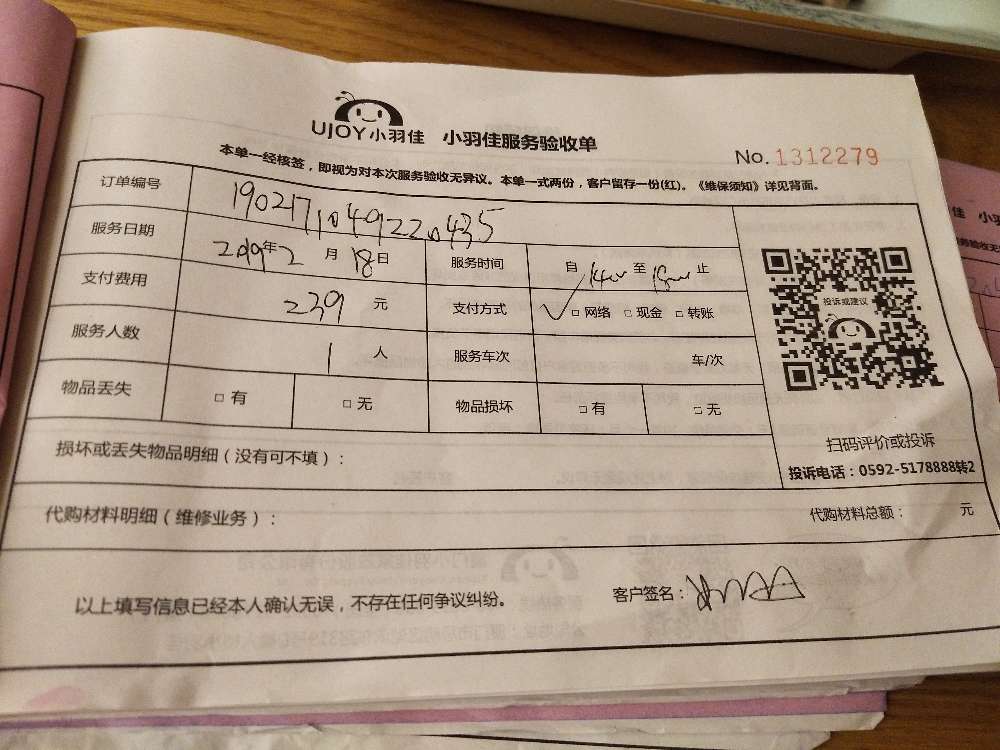 UJOY小羽佳 小羽佳服务验收单
No. 1312279
本单一经核签，即视为对本次服务验收无异议。本单一式两份，客户留存一份(红)。《维保须知》详见背面。
订单编号 1902171049220435
服务日期 2019年2月18日 服务时间 自 至 止
支付费用 239元 支付方式 ✓□网络 □现金 □转账
服务人数 1人 服务车次 车/次
物品丢失 □有 □无 物品损坏 □有 □无
投诉或建议
扫码评价或投诉
投诉电话：0592-5178888转2
损坏或丢失物品明细（没有可不填）：
代购材料明细（维修业务）： 代购材料总额： 元
以上填写信息已经本人确认无误，不存在任何争议纠纷。 客户签名：